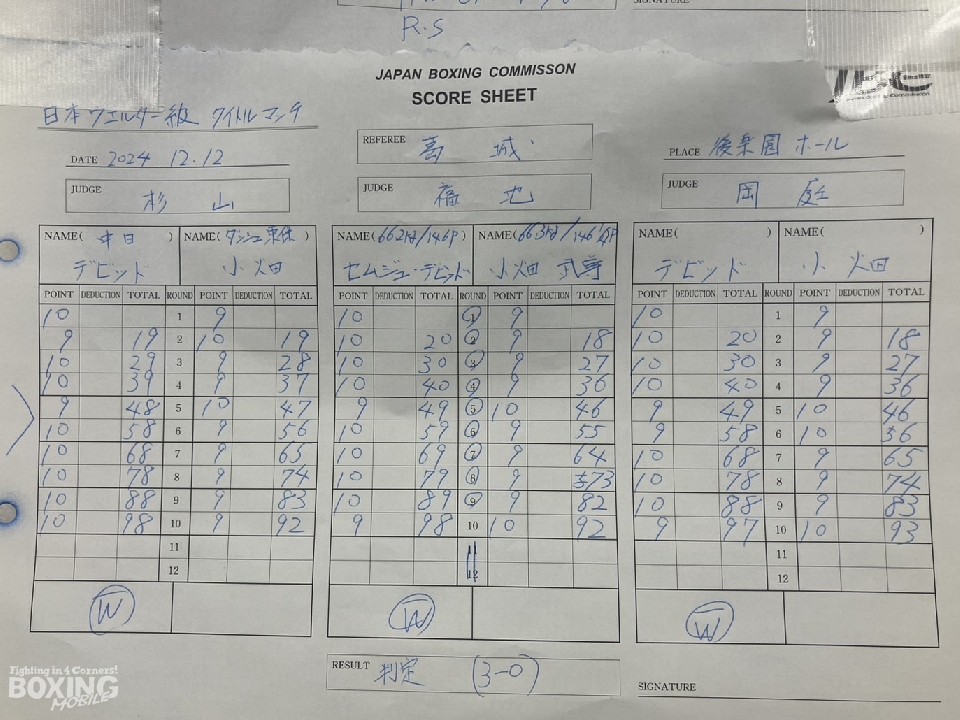 R.S
SIGNATURE
JAPAN BOXING COMMISSON
SCORE SHEET
日本ウエルター級 タイトルマッチ
DATE 2024 12.12
REFEREE 葛城
PLACE 後楽園ホール
JUDGE 杉山
JUDGE 福地
JUDGE 岡庭
NAME( 中日 ) NAME( ダッシュ東保 ) NAME(66.2kg/146P) NAME(66.3kg/146 P) NAME( ) NAME( )
デビッド 小畑 セムジュ・デビッド 小畑 武尊 デビッド 小畑
POINT DEDUCTION TOTAL ROUND POINT DEDUCTION TOTAL POINT DEDUCTION TOTAL ROUND POINT DEDUCTION TOTAL POINT DEDUCTION TOTAL ROUND POINT DEDUCTION TOTAL
10 1 9 10 1 9 10 1 9
9 19 2 10 19 10 20 2 9 18 10 20 2 9 18
10 29 3 9 28 10 30 3 9 27 10 30 3 9 27
10 39 4 9 37 10 40 4 9 36 10 40 4 9 36
9 48 5 10 47 9 49 5 10 46 9 49 5 10 46
10 58 6 9 56 10 59 6 9 55 9 58 6 10 56
10 68 7 9 65 10 69 7 9 64 10 68 7 9 65
10 78 8 9 74 10 79 8 9 73 10 78 8 9 74
10 88 9 9 83 10 89 9 9 82 10 88 9 9 83
10 98 10 9 92 9 98 10 10 92 9 97 10 10 93
11 11 11
12 12 12
W W W
RESULT 判定 (3-0)
SIGNATURE
Fighting in 4 Corners!
BOXING
MOBILE